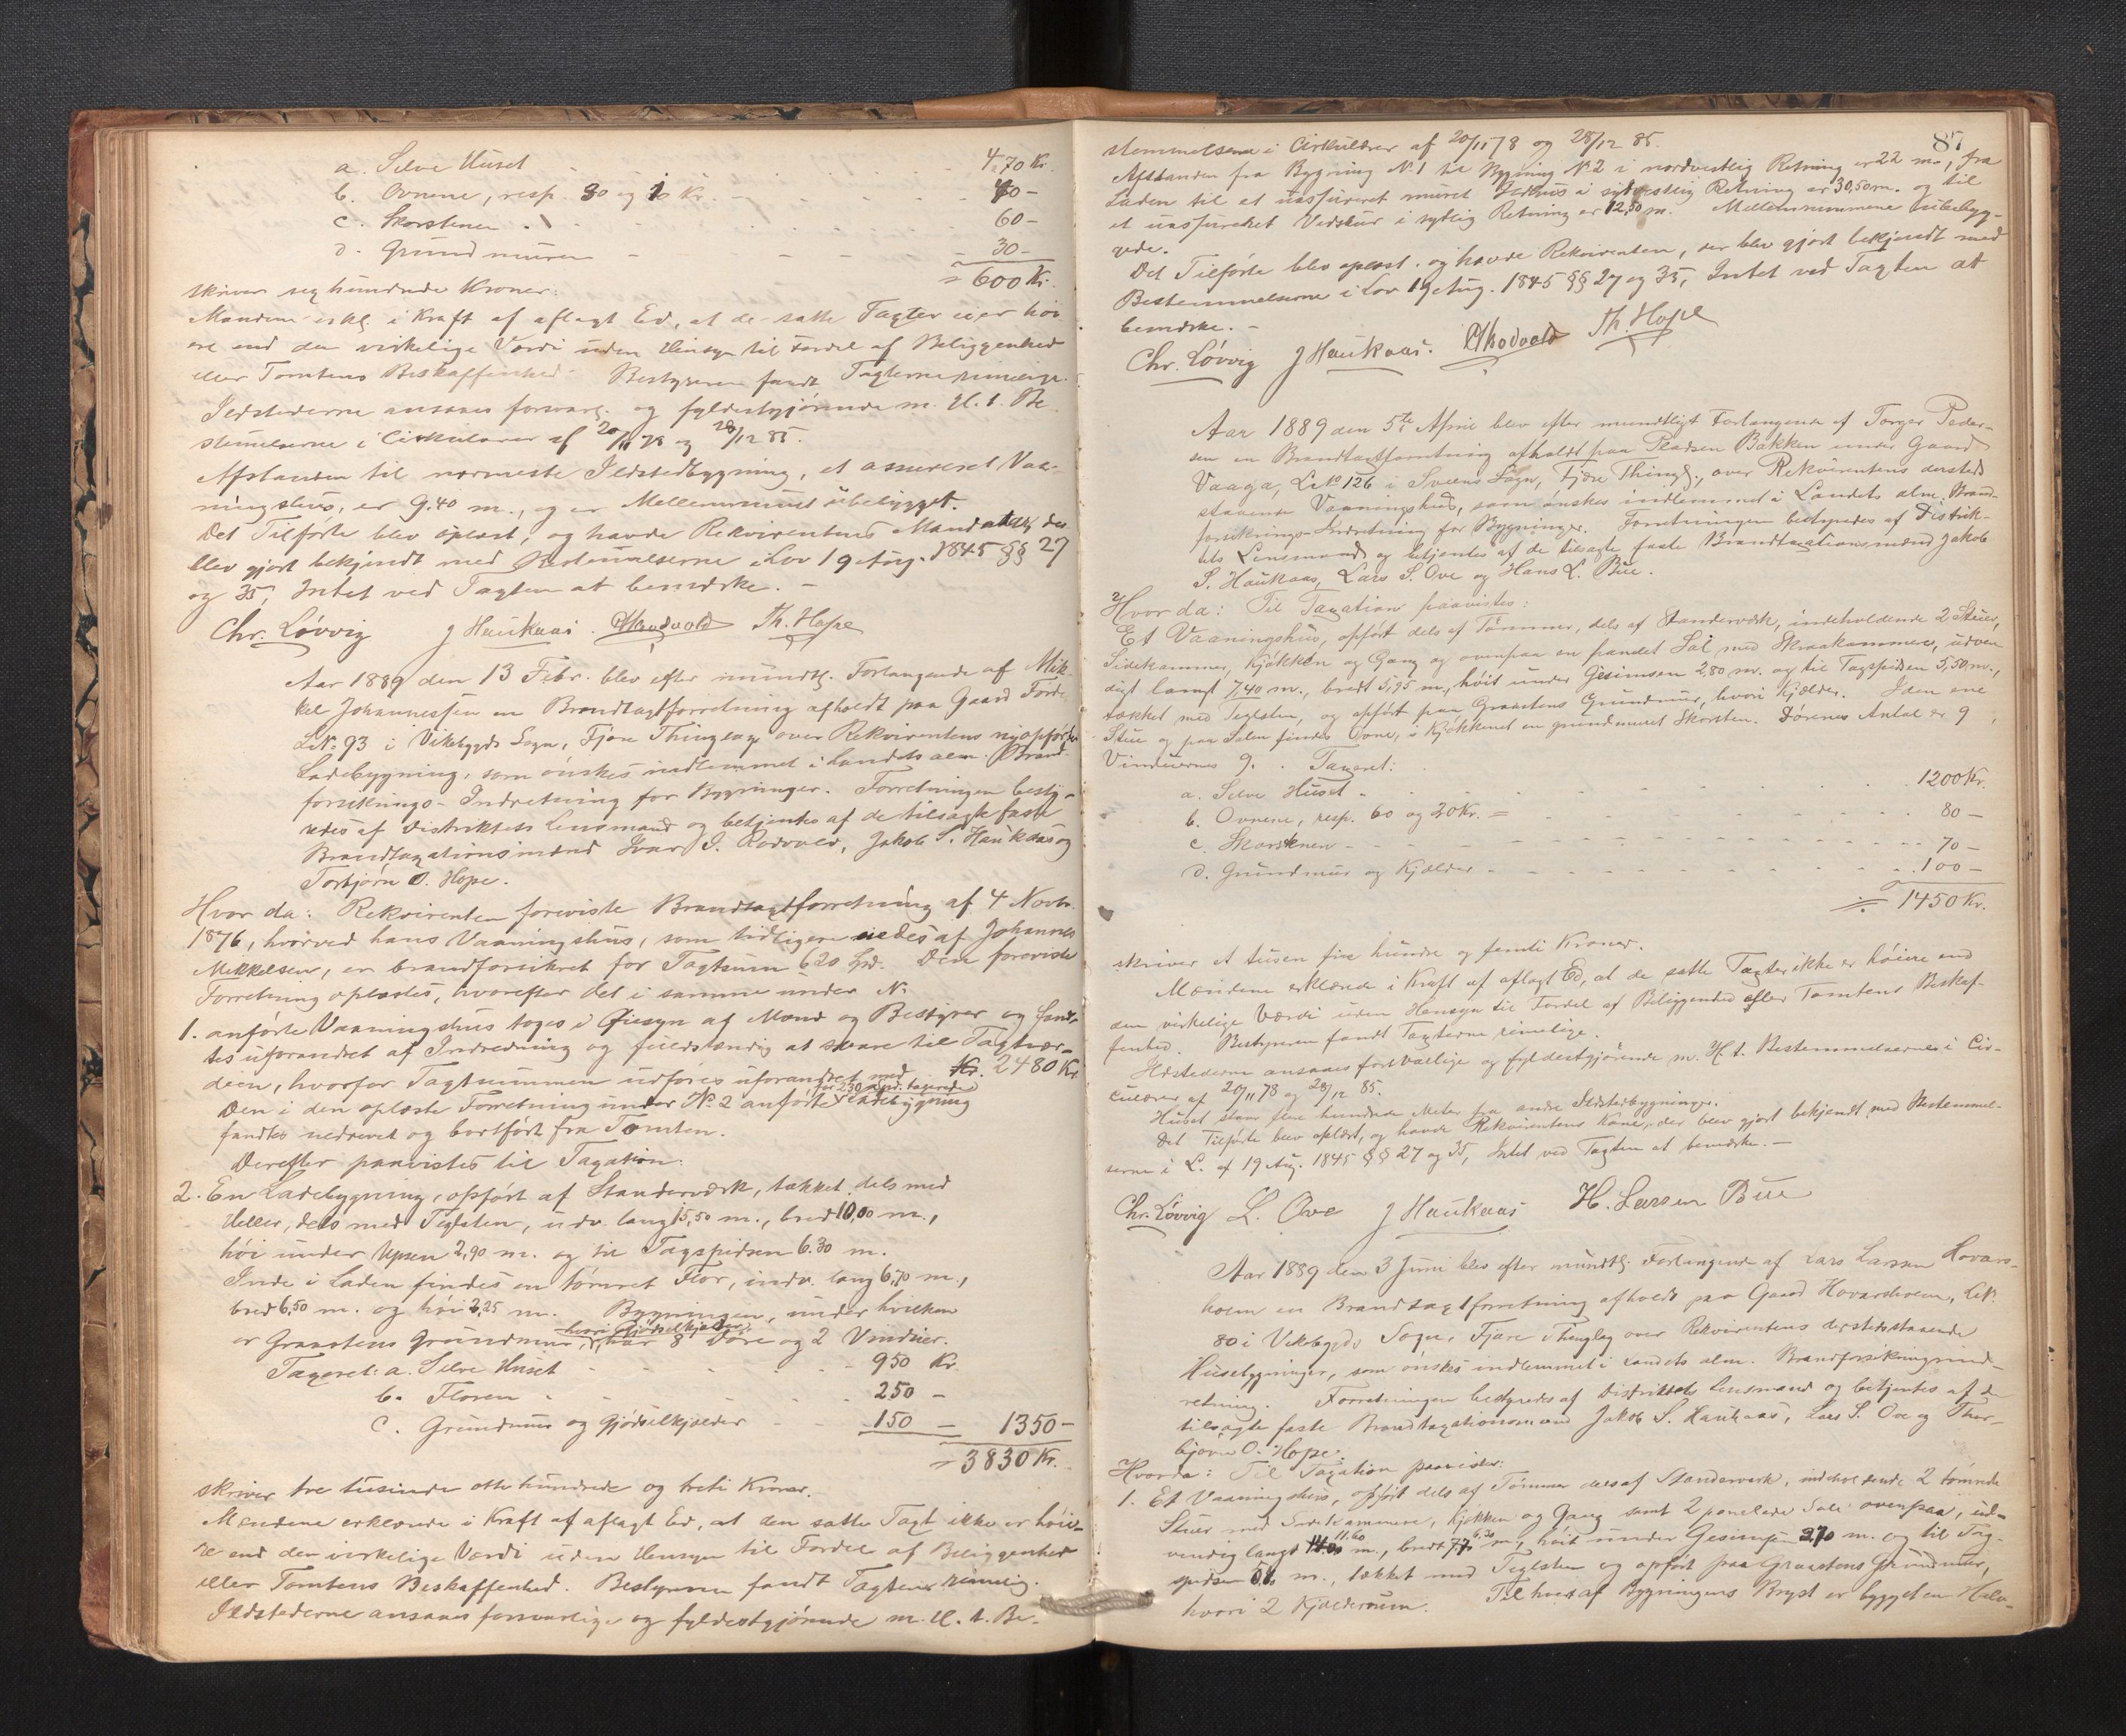 a. Selve Huset - - - 470 Kr.
b. Ovnene, resp. 30 og 10 Kr. - - - 40 -
c. Skorstenen - - - 60 -
d. Grundmuren - - - 30 -
= 600 Kr.
skriver sexhundrede Kroner.
Mændene erkl. i Kraft af aflagt Ed, at de satte Taxter ei er høi-
ere end den virkelige Værdi uden Hensyn til Fordel af Beliggenhed
eller Tomtens Beskaffenhed. Bestyreren fandt Taxterne rimelige.
Ildstederne ansaaes forsvarl. og fyldestgjørende m. H. t. Be-
stemelserne i Cirkulærer af 20/11 78 og 28/12 85.
Afstanden til nærmeste Ildstedbygning, et assureret Vaa-
ningshus, er 9,40 m., og er Mellemrummet ubebygget.
Det Tilførte blev oplæst, og havde Rekvirentens Mand, der
blev gjort bekjendt med Bestemmelserne i Lov 19 Aug. 1845 §§ 27
og 35, Intet ved Taxten at bemærke. -
Chr. Løvvig J Haukaas. Th. Hope
Aar 1889 den 13 Febr. blev efter mundtl. Forlangende af Mik-
kel Johannessen en Brandtaxtforretning afholdt paa Gaard Førde
LNo 93 i Vikebygds Sogn, Fjære Thinglag over Rekvirentens nyopførte
Ladebygning, som ønskes indlemmet i Landets alm. Brand-
forsiknings-Indretning for Bygninger. Forretningen besty-
redes af Distriktets Lensmand og betjentes af de tilsagte faste
Brandtaxationsmænd Ivar I. Rødvold, Jakob S. Haukaas og
Torbjørn O. Hope.
Hvor da: Rekvirenten foreviste Brandtaxtforretning af 4 Novbr.
1876, hvorved hans Vaaningshus, som tidligere eiedes af Johannes
Mikkelsen, er brandforsikret for Taxtsum 620 Spd. Den foreviste
Forretning oplæstes, hvorefter det i samme under No
1. anførte Vaaningshus toges i Øiesyn af Mænd og Bestyrer og fand-
tes uforandret af Indredning og fuldstændig at svare til Taxtvær-
dien, hvorfor Taxtsummen udføres uforandret med Kr. 2480 Kr
for 230 Spd. taxerede
Den i den oplæste Forretning under No 2 anførte Ladebygning
fandtes nedrevet og bortført fra Tomten.
Derefter paavistes til Taxation:
2. En Ladebygning, opført af Standerværk, tækket dels med
Heller, dels med Teglsten, udv. lang 15,50 m., bred 10,00 m.,
høi under Upsen 2,90 m. og til Tagspidsen 6.30 m.
Inde i Laden findes en tømret Flor, indv. lang 6,70 m.,
bred 6,50 m. og høi 2,25 m. Bygningen, under hvilken
hvori Gjødselkjelder,
er Graastens Grundmur, har 8 Døre og 2 Vinduer.
Taxeret: a. Selve Huset - - - 950 Kr.
b. Floren - - - 250 -
c. Grundmur og Gjødselkjælder - - - 150 - 1350 -
= 3830 Kr.
skriver tre tusinde otte hundrede og treti Kroner.
Mændene erklærede i Kraft af aflagt Ed, at den satte Taxt ikke er høie-
re end den virkelige Værdi uden Hensyn til Fordel af Beliggenhed
eller Tomtens Beskaffenhed. Bestyreren fandt Taxten rimelig.
Ildstederne ansaaes forsvarlige og fyldestgjørende m. H. t. Be-
87
stemmelserne i Cirkulærer af 20/11 78 og 28/12 85.
Afstanden fra Bygning No 1 til Bygning No 2 i nordvestlig Retning er 22 m., fra
Laden til et uassureret muret Ildhus i sydvestlig Retning er 30,50 m. og til
et uassureret Vedskur i sydlig Retning er 12,50 m. Mellemrummene ubebyg-
gede.
Det Tilførte blev oplæst, og havde Rekvirenten, der blev gjort bekjendt med
Bestemmelserne i Lov 19 Aug. 1845 §§ 27 og 35, Intet ved Taxten at
bemærke. -
Chr. Løvvig J Haukaas. Th. Hope
Aar 1889 den 5te April blev efter mundtligt Forlangende af Torger Peder-
sen en Brandtaxtforretning afholdt paa Pladsen Bakken under Gaard
Vaaga, LNo 126 i Sveens Sogn, Fjære Thingl., over Rekvirentens dersteds
staaende Vaaningshus, som ønskes indlemmet i Landets alm. Brand-
forsiknings-Indretning for Bygninger. Forretningen bestyredes af Distrik-
tets Lensmand og betjentes af de tilsagte faste Brandtaxationsmænd Jakob
S. Haukaas, Lars S. Ove og Hans L. Bue.
Hvor da: Til Taxation paavistes:
Et Vaaningshus, opført dels af Tømmer, dels af Standerværk, indeholdende 2 Stuer,
Sidekammer, Kjøkken og Gang og ovenpaa en pandet Sal med Skraakammer, udven-
digt langt 7,40 m., bredt 5,95 m., høit under Gesimsen 2,80 m. og til Tagspidsen 5,50 m.,
tækket med Teglsten, og opført paa Graastens Grundmur, hvori Kjælder. I den ene
Stue og paa Salen findes Ovne, i Kjøkkenet en grundmuret Skorsten. Dørenes Antal er 9,
Vinduernes 9. Taxeret:
a. Selve Huset - - - 1200 Kr.
b. Ovnene, resp. 60 og 20 Kr. - - - 80 -
c. Skorstenen - - - 70 -
d. Grundmur og Kjælder - - - 100 -
1450 Kr.
skriver et tusen fire hundre og femti Kroner.
Mændene erklærede i Kraft af aflagt Ed, at de satte Taxter ikke er høiere end
den virkelige Værdi uden Hensyn til Fordel af Beliggenhed eller Tomtens Beskaf-
fenhed. Bestyreren fandt Taxterne rimelige.
Ildstederne ansaaes forsvarlige og fyldestgjørende m. H. t. Bestemmelserne i Cir-
culærer af 20/11 78 og 28/12 85.
Huset staar flere hundrede Meter fra andre Ildstedbygninger.
Det Tilførte blev oplæst, og havde Rekvirentens Kone, der blev gjort bekjendt med Bestemmel-
serne i L. af 19 Aug. 1845 §§ 27 og 35, Intet ved Taxten at bemærke. -
Chr. Løvvig L. Ove J Haukaas H. Larsen Bue
Aar 1889 den 3 Juni blev efter mundtl. Forlangende af Lars Larsen Hovars-
holm en Brandtaxtforretning afholdt paa Gaard Hovarsholm, LNo
80 i Vikebygds Sogn, Fjære Thinglag over Rekvirentens derstedsstaaende
Husebygninger, som ønskes indlemmet i Landets alm. Brandforsikningsind-
retning. Forretningen bestyredes af Distriktets Lensmand og betjentes af de
tilsagte faste Brandtaxationsmænd Jakob S. Haukaas, Lars S. Ove og Thor-
bjørn O. Hope.
Hvorda: Til Taxation paavistes:
1. Et Vaaningshus, opført dels af Tømmer dels af Standerværk, indeholdende 2 tømrede
Stuer med Sidekammere, Kjøkken og Gang samt 2 panelede Sale ovenpaa, ud-
vendig langt 11.60 m., bredt 6.30 m, høit under Gesimsen 3,70 m. og til Tag-
spidsen m., tækket med Teglsten og opført paa Graastens Grundmur,
hvori 2 Kjælderrum. Til hvert af Bygningens Bryst er bygget en Halv-